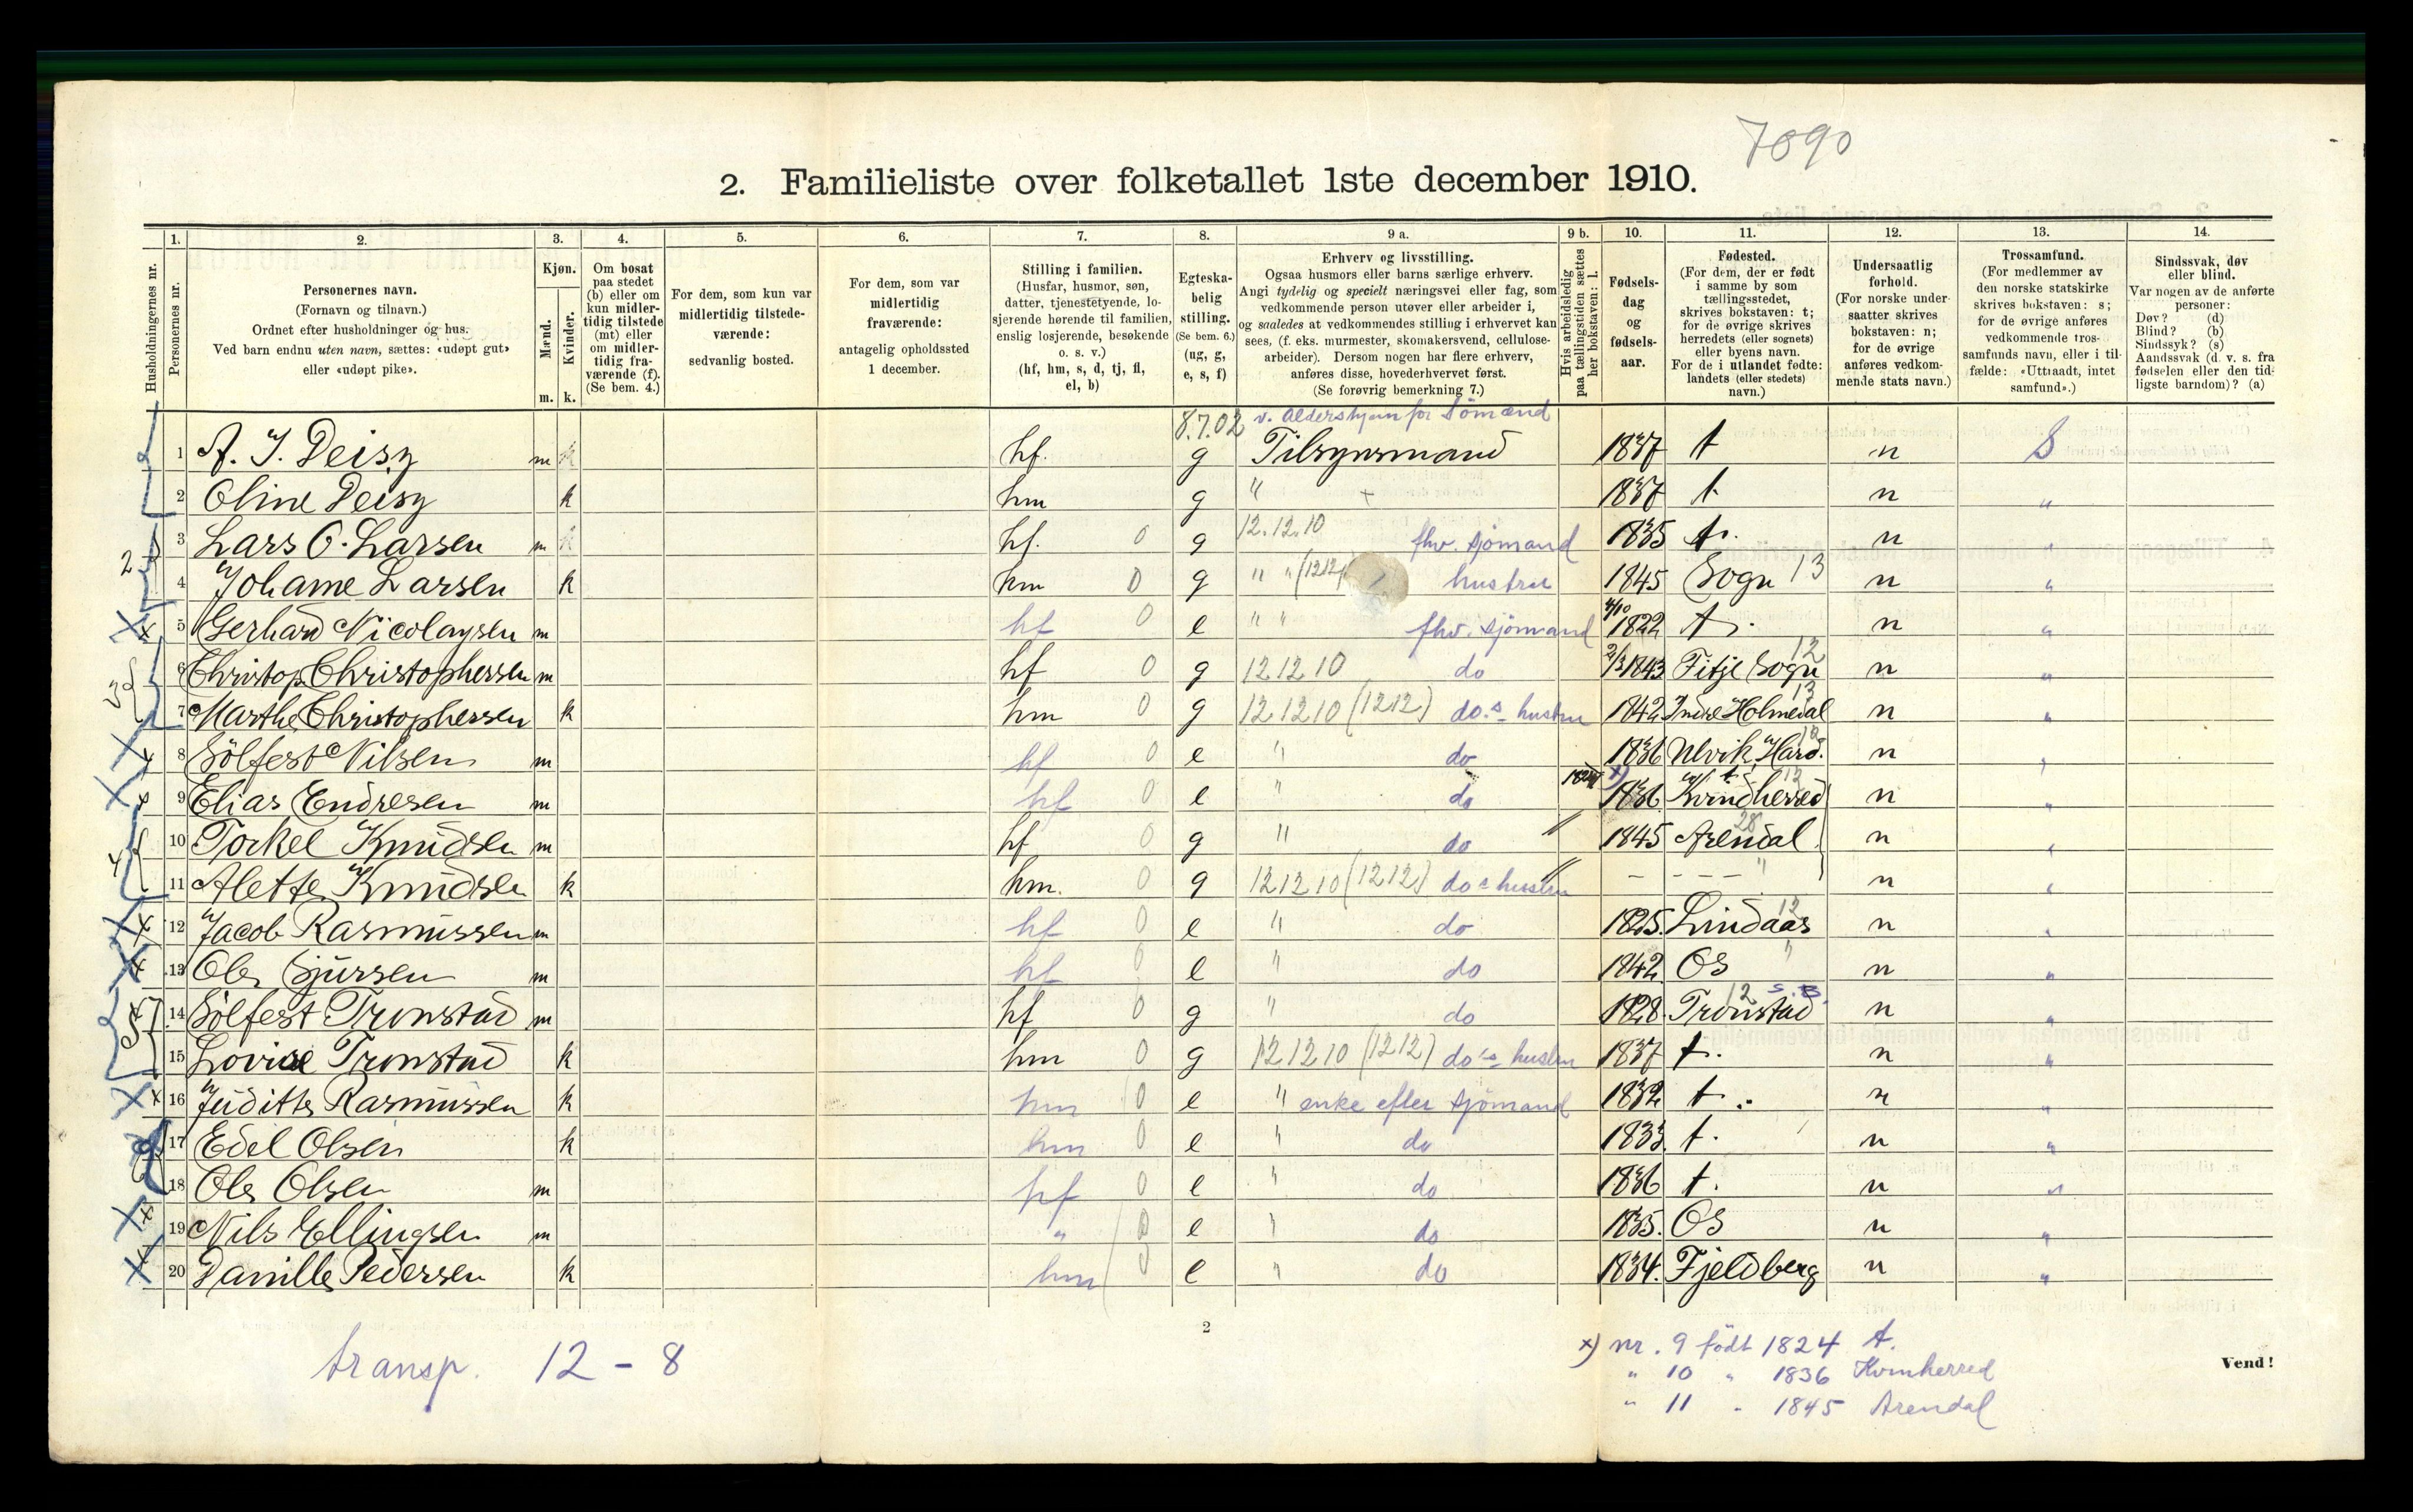 7090
2. Familieliste over folketallet 1ste december 1910.
1. 2. 3. 4. 5. 6. 7. 8. 9 a. 9 b. 10. 11. 12. 13. 14.
Husholdningernes nr.
Personernes nr.
Personernes navn.
(Fornavn og tilnavn.)
Ordnet efter husholdninger og hus.
Ved barn endnu uten navn, sættes: «udøpt gut»
eller «udøpt pike».
Kjøn.
Mænd.
Kvinder.
m. k.
Om bosat
paa stedet
(b) eller om
kun midler-
tidig tilstede
(mt) eller
om midler-
tidig fra-
værende (f).
(Se bem. 4.)
For dem, som kun var
midlertidig tilstede-
værende:
sedvanlig bosted.
For dem, som var
midlertidig
fraværende:
antagelig opholdssted
1 december.
Stilling i familien.
(Husfar, husmor, søn,
datter, tjenestetyende, lo-
sjerende hørende til familien,
enslig losjerende, besøkende
o. s. v.)
(hf, hm, s, d, tj, fl,
el, b)
Egteska-
belig
stilling.
(Se bem. 6.)
(ug, g,
e, s, f)
Erhverv og livsstilling.
Ogsaa husmors eller barns særlige erhverv.
Angi tydelig og specielt næringsvei eller fag, som
vedkommende person utøver eller arbeider i,
og saaledes at vedkommendes stilling i erhvervet kan
sees, (f. eks. murmester, skomakersvend, cellulose-
arbeider). Dersom nogen har flere erhverv,
anføres disse, hovederhvervet først.
(Se forøvrig bemerkning 7.)
Hvis arbeidsledig
paa tællingstiden sættes
her bokstaven: l.
Fødsels-
dag
og
fødsels-
aar.
Fødested.
(For dem, der er født
i samme by som
tællingsstedet,
skrives bokstaven: t;
for de øvrige skrives
herredets (eller sognets)
eller byens navn.
For de i utlandet fødte:
landets (eller stedets)
navn.)
Undersaatlig
forhold.
(For norske under-
saatter skrives
bokstaven: n;
for de øvrige
anføres vedkom-
mende stats navn.)
Trossamfund.
(For medlemmer av
den norske statskirke
skrives bokstaven: s;
for de øvrige anføres
vedkommende tros-
samfunds navn, eller i til-
fælde: «Uttraadt, intet
samfund».)
Sindssvak, døv
eller blind.
Var nogen av de anførte
personer:
Døv? (d)
Blind? (b)
Sindssyk? (s)
Aandssvak (d. v. s. fra
fødselen eller den tid-
ligste barndom)? (a)
8.7.02 v. Aldershjem for Sömænd
1 A. J. Deisz m hf. g Tilsynsmand 1837 t n S
2 Oline Deisz k hm g " 1837 t n "
3 Lars O. Larsen m hf. 0 g 12.12.10 fhv. sjömand 1835 t. n "
2
4 Johanne Larsen k hm 0 g " " (1212) hustru 1845 Sogn 13 n "
5 Gerhard Nicolaysen m hf 0 e " " fhv. sjömand 4/10 1822 t. n "
6 Christop. Christophersen m hf 0 g 12 12 10 do 2/3 1843 Fitje Sogn 12 n "
3
7 Marthe Christophersen k hm 0 g 12 12 10 (1212) do.s hustru 1842 Indre Holmedal 13 n "
8 Sölfest Nilsen m hf 0 e " do 1836 Ulvik, Hard. n "
9 Elias Endresen m hf 0 e " do 1824 x) 1836 Kvindherred t 12 n "
10 Torkel Knudsen m hf 0 g " do 1845 Arendal 28 n "
4
11 Alette Knudsen k hm. 0 g 12 12 10 (1212) do s hustru - - - - " n "
12 Jacob Rasmussen m hf 0 e " do 1825. Lindaas 12 n "
13 Ole Sjursen m hf 0 e " do 1842 Os " n "
14 Sölfest Tronstad m hf 0 g " do 1828. Tronstad 12 S.B. n "
5
15 Lovise Tronstad k hm 0 g 12 12 10 (1212) do's hustru 1837 t. n "
16 Judithe Rasmussen k hm 0 e " enke efter sjömand 1832 t. n "
17 Edel Olsen k hm 0 e " do 1833. t. n "
6
18 Ole Olsen m hf 0 e " do 1836 t. n "
19 Nils Ellingsen m " 0 e " do 1835. Os n "
20 Danille Pedersen k hm 0 e " do 1834. Fjeldberg n "
2
transp. 12 - 8
x) nr. 9 födt 1824 t.
" 10 " 1836 Kvinherred
" 11 " 1845 Arendal
Vend!